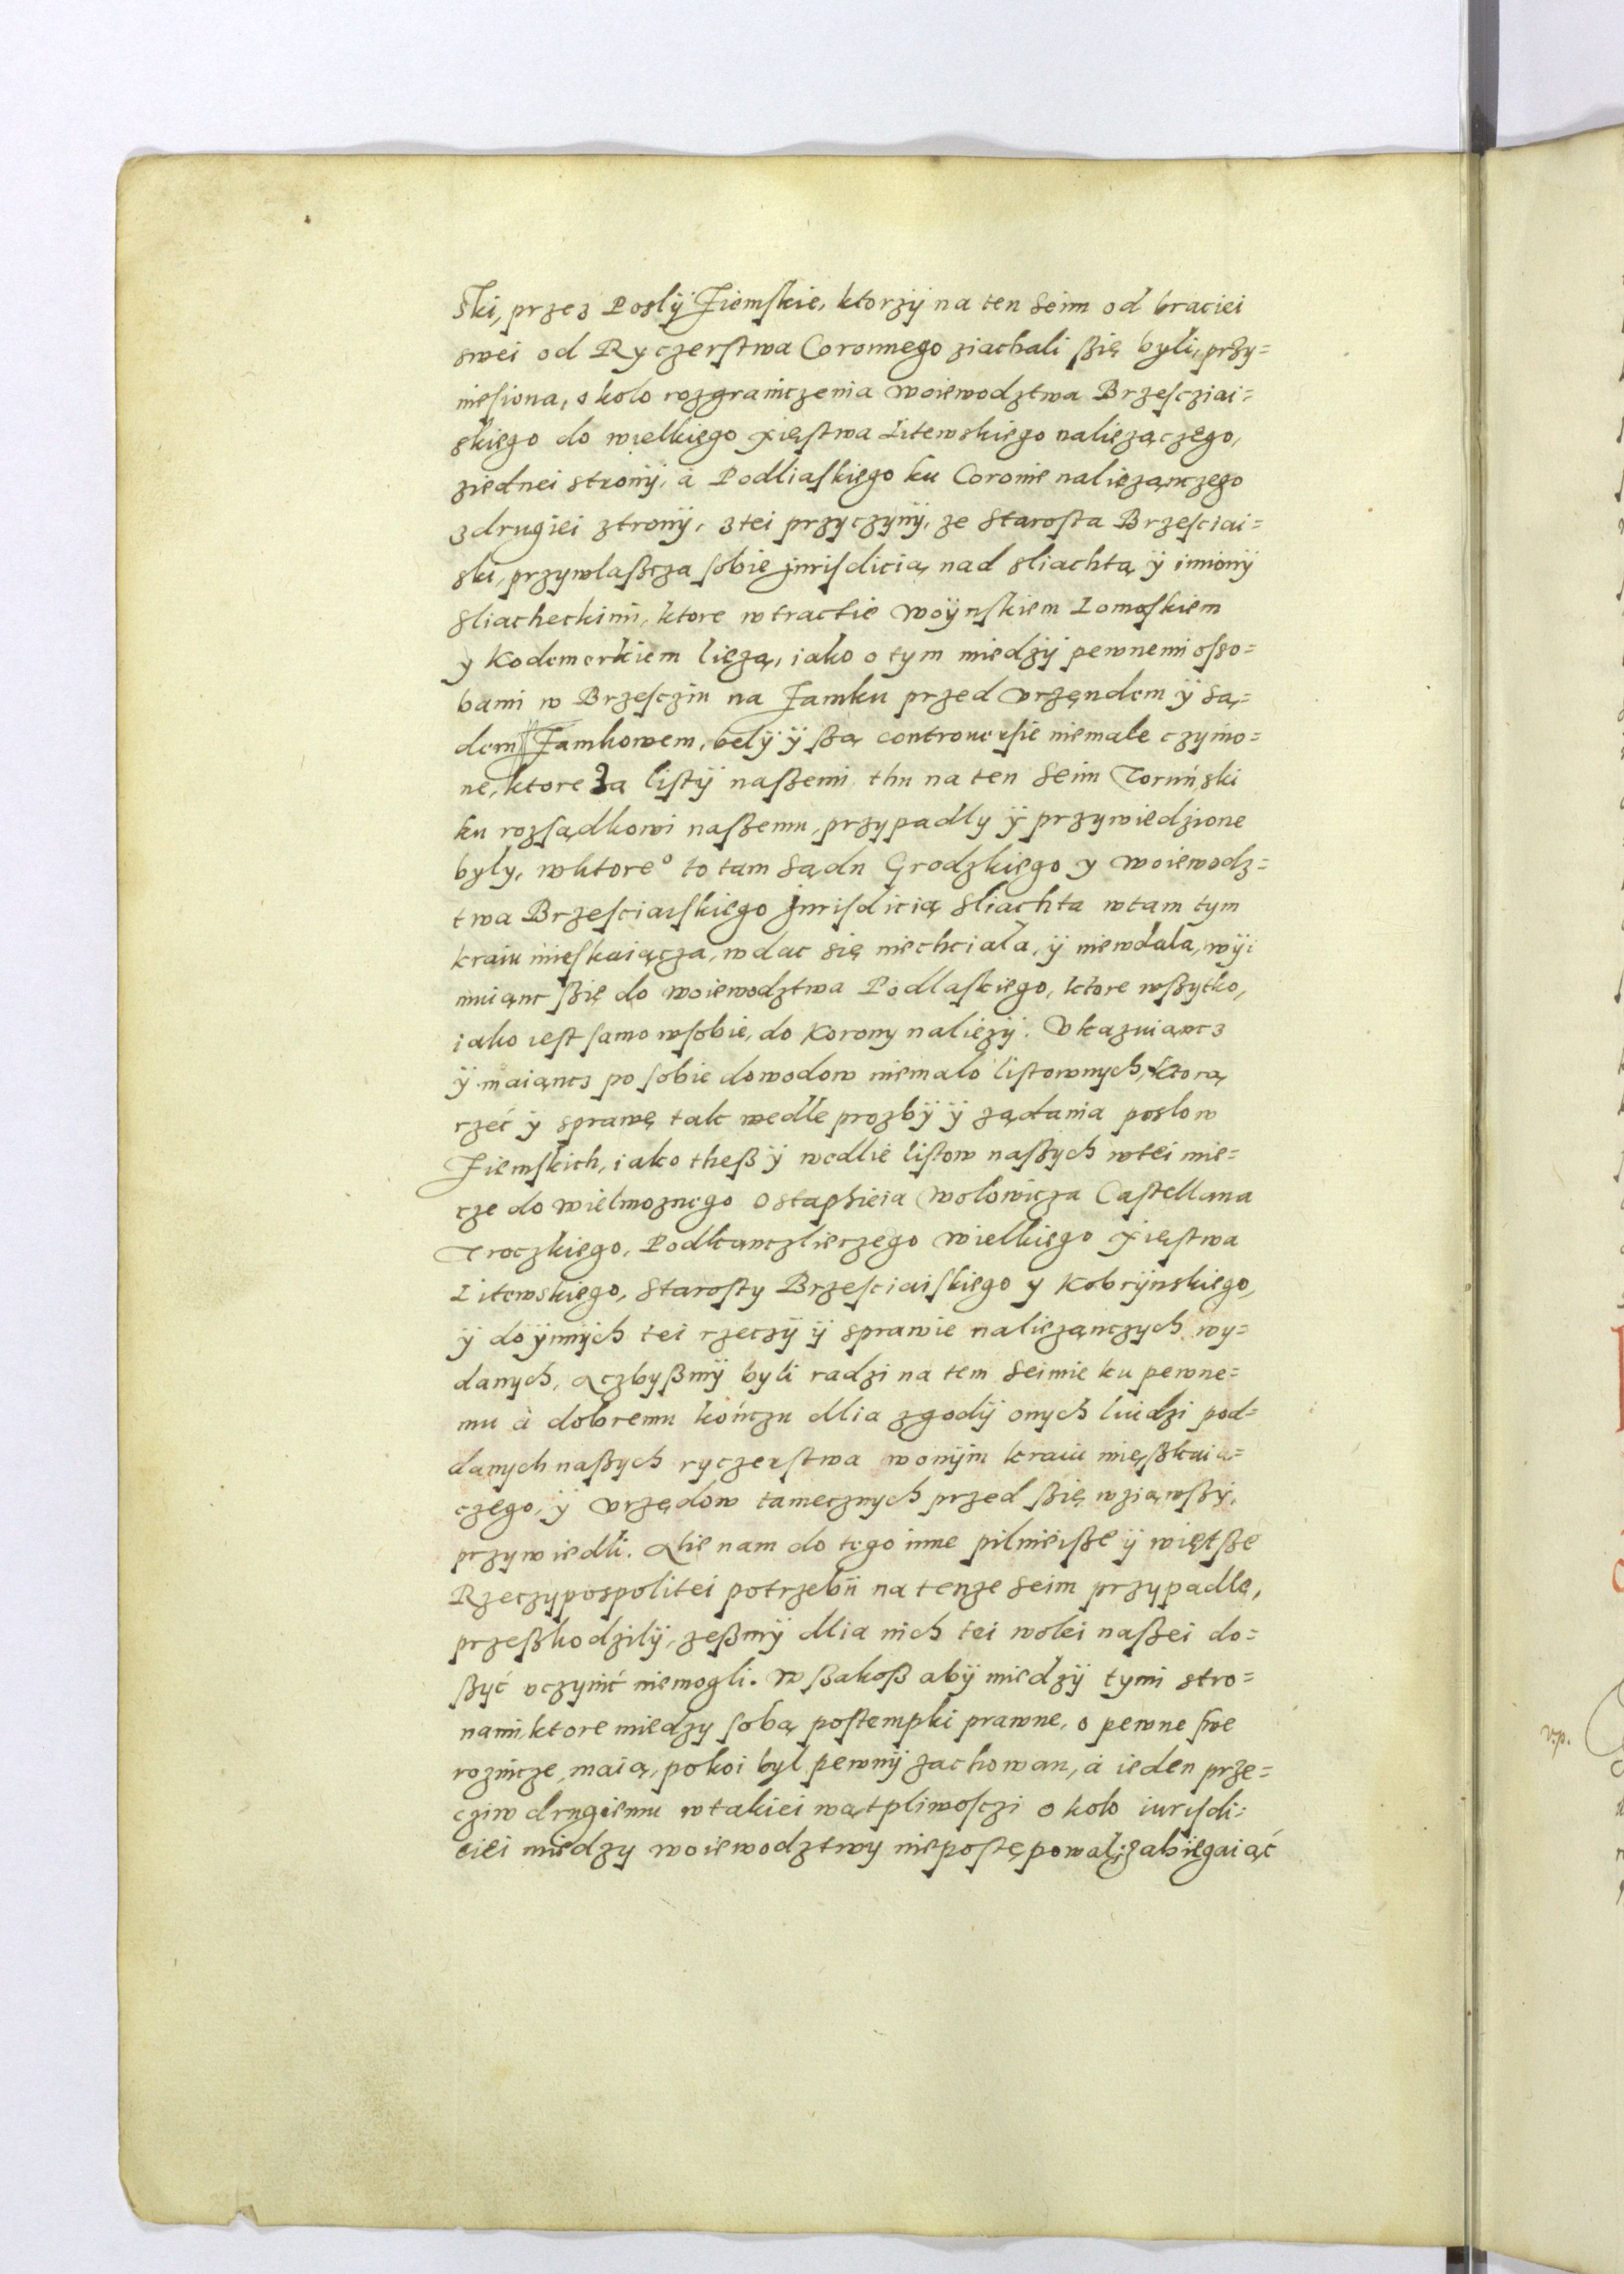 ski, przez Poslÿ Ziemſkie, ktorzÿ na ten Seim od braciei
swei od Ryczerſtwa Coronnego ziachali ßię byli, przy=
nieſiona, około rozgraniczenia woiewodztwa Brzeſcziai=
skiego do wielkiego xięſtwa Litewskiego należączego,
ziednei stronÿ, à Podliaſkiego ku Coronie naliezączego
zdrugiei ztronÿ, ztei przyczynÿ, ze Staroſta Brzeſciai=
ski, przywlaßcza ſobie juriſdicią nad sliachtą ÿ imionÿ
Sliacheckimi, ktore wtractie woÿnſkiem Lomaſkiem
y Kodemerkiem liezą, iako o tym miedzÿ pewnemi oſso=
bami w Brzeſcziu na Zamku przed vrzęndem ÿ są=
dem Zamkowem, belÿ ÿ ßą controuerſie niemale czynio=
ne, ktore za liſtÿ naßemi thu na ten Seim Toruński
ku rozſądkowi naßemu, przypadly ÿ przywiedzione
byly, wktore° to tam Sądu Grodzkiego y woiewodz=
twa Brzeſciaiſkiego juriſdicią sliachta wtam tym
kraiu mieſkaiącza, wdac się niechciala, ÿ niewdala, wÿi
muiąnc ßię do woiewodztwa Podlaſkiego, ktore wßytko,
iako ieſt ſamo wſobie, do Korony naliezÿ. Vkazuiancz
ÿ maiąncz po ſobie dowodow niemalo liſtownych, ktorą
rzéć ÿ sprawę tak wedle prozbÿ ÿ ządania poslow
Ziemſkich, iako theß ÿ wedlie liſtow naßych wtei mie=
rze do wielmoznego Ostaphieia Wolowicza Caſtellana
Troczkiego, Podkanczlierzego wielkiego Xięſtwa
Litewskiego, Staroſty Brzeſciaiſkiego y Kobrÿnskiego,
ÿ do ÿnnÿch tei rzeczÿ ÿ sprawie naliezączych wy=
danych, Aczbyßmÿ byli radzi na tem Seimie ku pewne=
mu à dobremu kończu dlia zgodÿ onych luidzi pod=
danych naßych ryczerſtwa wonÿm kraiu mięßkaią=
czego, ÿ vrzędow tamecznych przed ßię wziąwßÿ,
przywiedli. Alie nam do tego inne pilnieiße ÿ więtße
Rzeczypospolitei potrzebÿ na tenze Seim przypadle,
przeßkodzilÿ, zeßmÿ dlia nich tei wolei naßei do=
ßyć vczynić niemogli. Wßakoß abÿ miedzÿ tymi stro=
nami, ktore miedzy ſobą poſtempki prawne, o pewne ſwe
roznicze, maią, pokoi byl pewnÿ zachowan, à ieden prze=
cziw drugiemu wtakiei wątpliwoſczi około iuriſdi=
ciei miedzy woiewodztwy niepoſtępowal, zabiegaiąć
v.p.